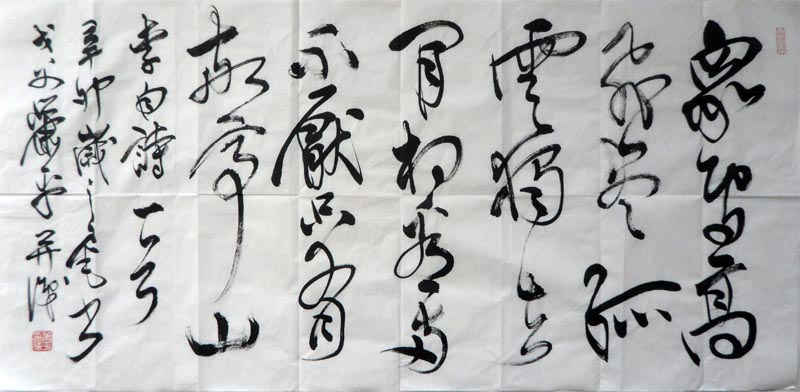 眾鳥高
飛盡孤
雲獨去
閒相看兩
不厭只有
敬亭山
李白詩一首
辛卯歲之書
平并識